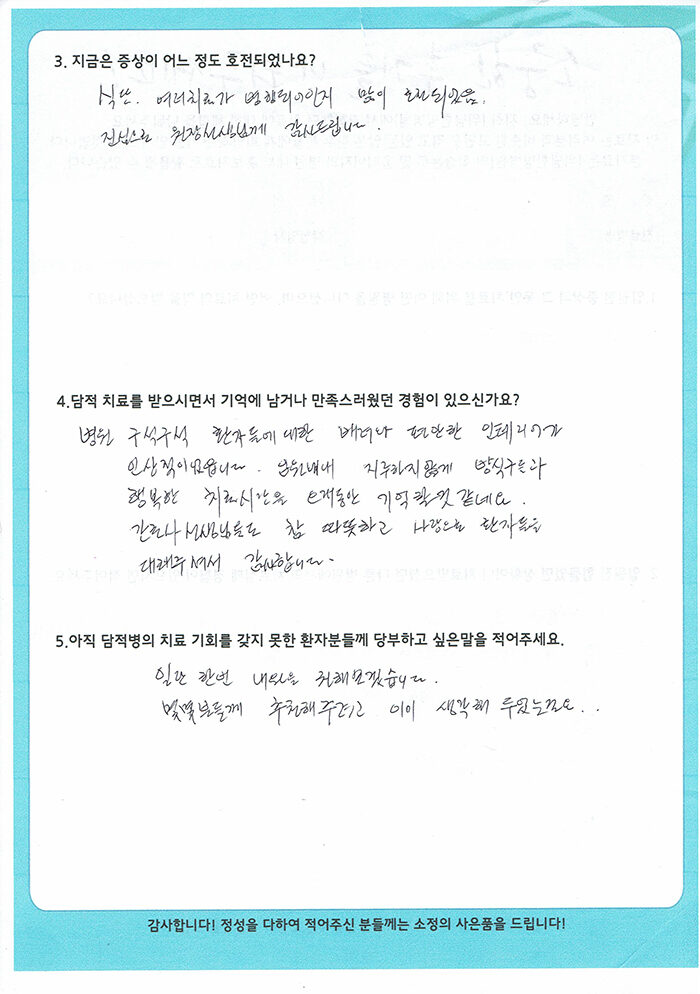 3. 지금은 증상이 어느 정도 호전되었나요?
식단. 여러치료가 병행되어인지 많이 호전되었음.
진심으로 원장선생님께 감사드립니다.
4.담적 치료를 받으시면서 기억에 남거나 만족스러웠던 경험이 있으신가요?
병원 구석구석 환자들에 대한 배려나 편안한 인테리어가
인상적이었습니다. 입원내내 지루하지않게 방식구들과
행복한 치료시간을 오래동안 기억할것 같네요.
간호사 선생님들도 참 따뜻하고 사랑으로 환자들을
대해주셔서 감사합니다.
5.아직 담적병의 치료 기회를 갖지 못한 환자분들께 당부하고 싶은말을 적어주세요.
일단 한번 내원을 권해보겠습니다.
몇몇분들께 추천해주려고 이미 생각해 두었는걸요..
감사합니다! 정성을 다하여 적어주신 분들께는 소정의 사은품을 드립니다!